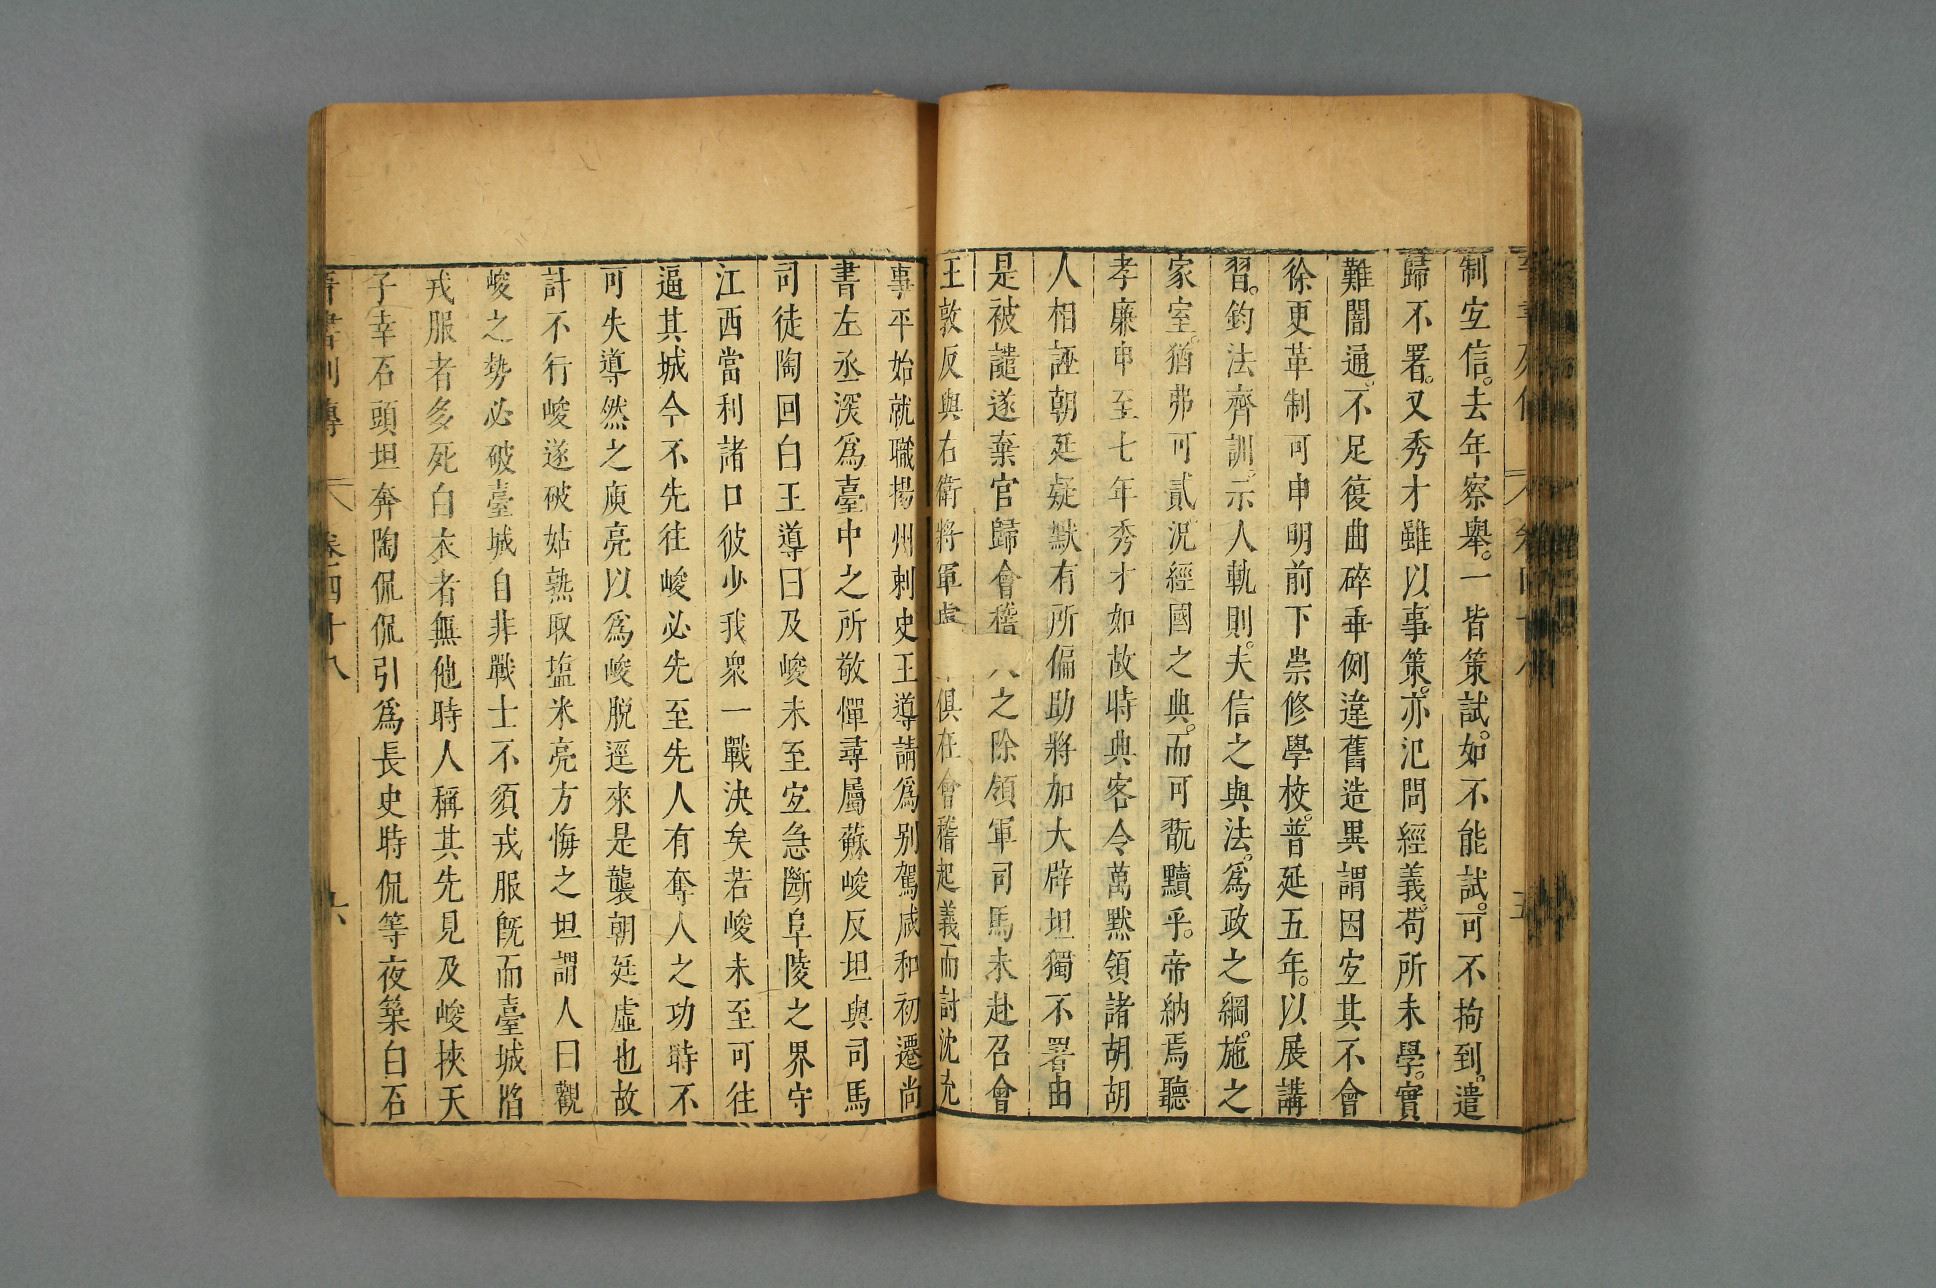 制宐信。去年察舉。一皆策試。如不能試。可不拘到。遣
歸不署。又秀才雖以事策。亦氾問經義。苟所未學。實
難闇通。不足復曲碎乖例違舊造異謂因宐其不會
徐更革制可申明前下崇修學校。普延五年。以展講
習。鈞法齊訓。示人軌則。夫信之與法。爲政之綱。施之
家室。猶弗可貳況經國之典。而可翫黷乎。帝納焉聽
孝廉申至七年秀才如故時典客令萬默領諸胡胡
人相誣朝廷疑默有所偏助將加大辟坦獨不署由
是被譴遂棄官歸會稽 之除領軍司馬未赴召會
王敦反與右衛將軍虞 俱在會稽起義而討沈充
事平始就職揚州刺史王導請爲别駕咸和初遷尚
書左丞深爲臺中之所敬憚尋屬蘇峻反坦與司馬
司徒陶回白王導曰及峻未至宐急斷阜陵之界守
江西當利諸口彼少我衆一戰決矣若峻未至可往
逼其城今不先往峻必先至先人有奪人之功時不
可失導然之庾亮以爲峻脱逕來是襲朝廷虛也故
計不行峻遂破姑熟取塩米亮方悔之坦謂人曰觀
峻之勢必破臺城自非戰士不須戎服旣而臺城䧟
戎服者多死白衣者無他時人稱其先見及峻挾天
子幸石頭坦奔陶侃侃引爲長史時侃等夜築白石
晉書列傳 卷四十八 六